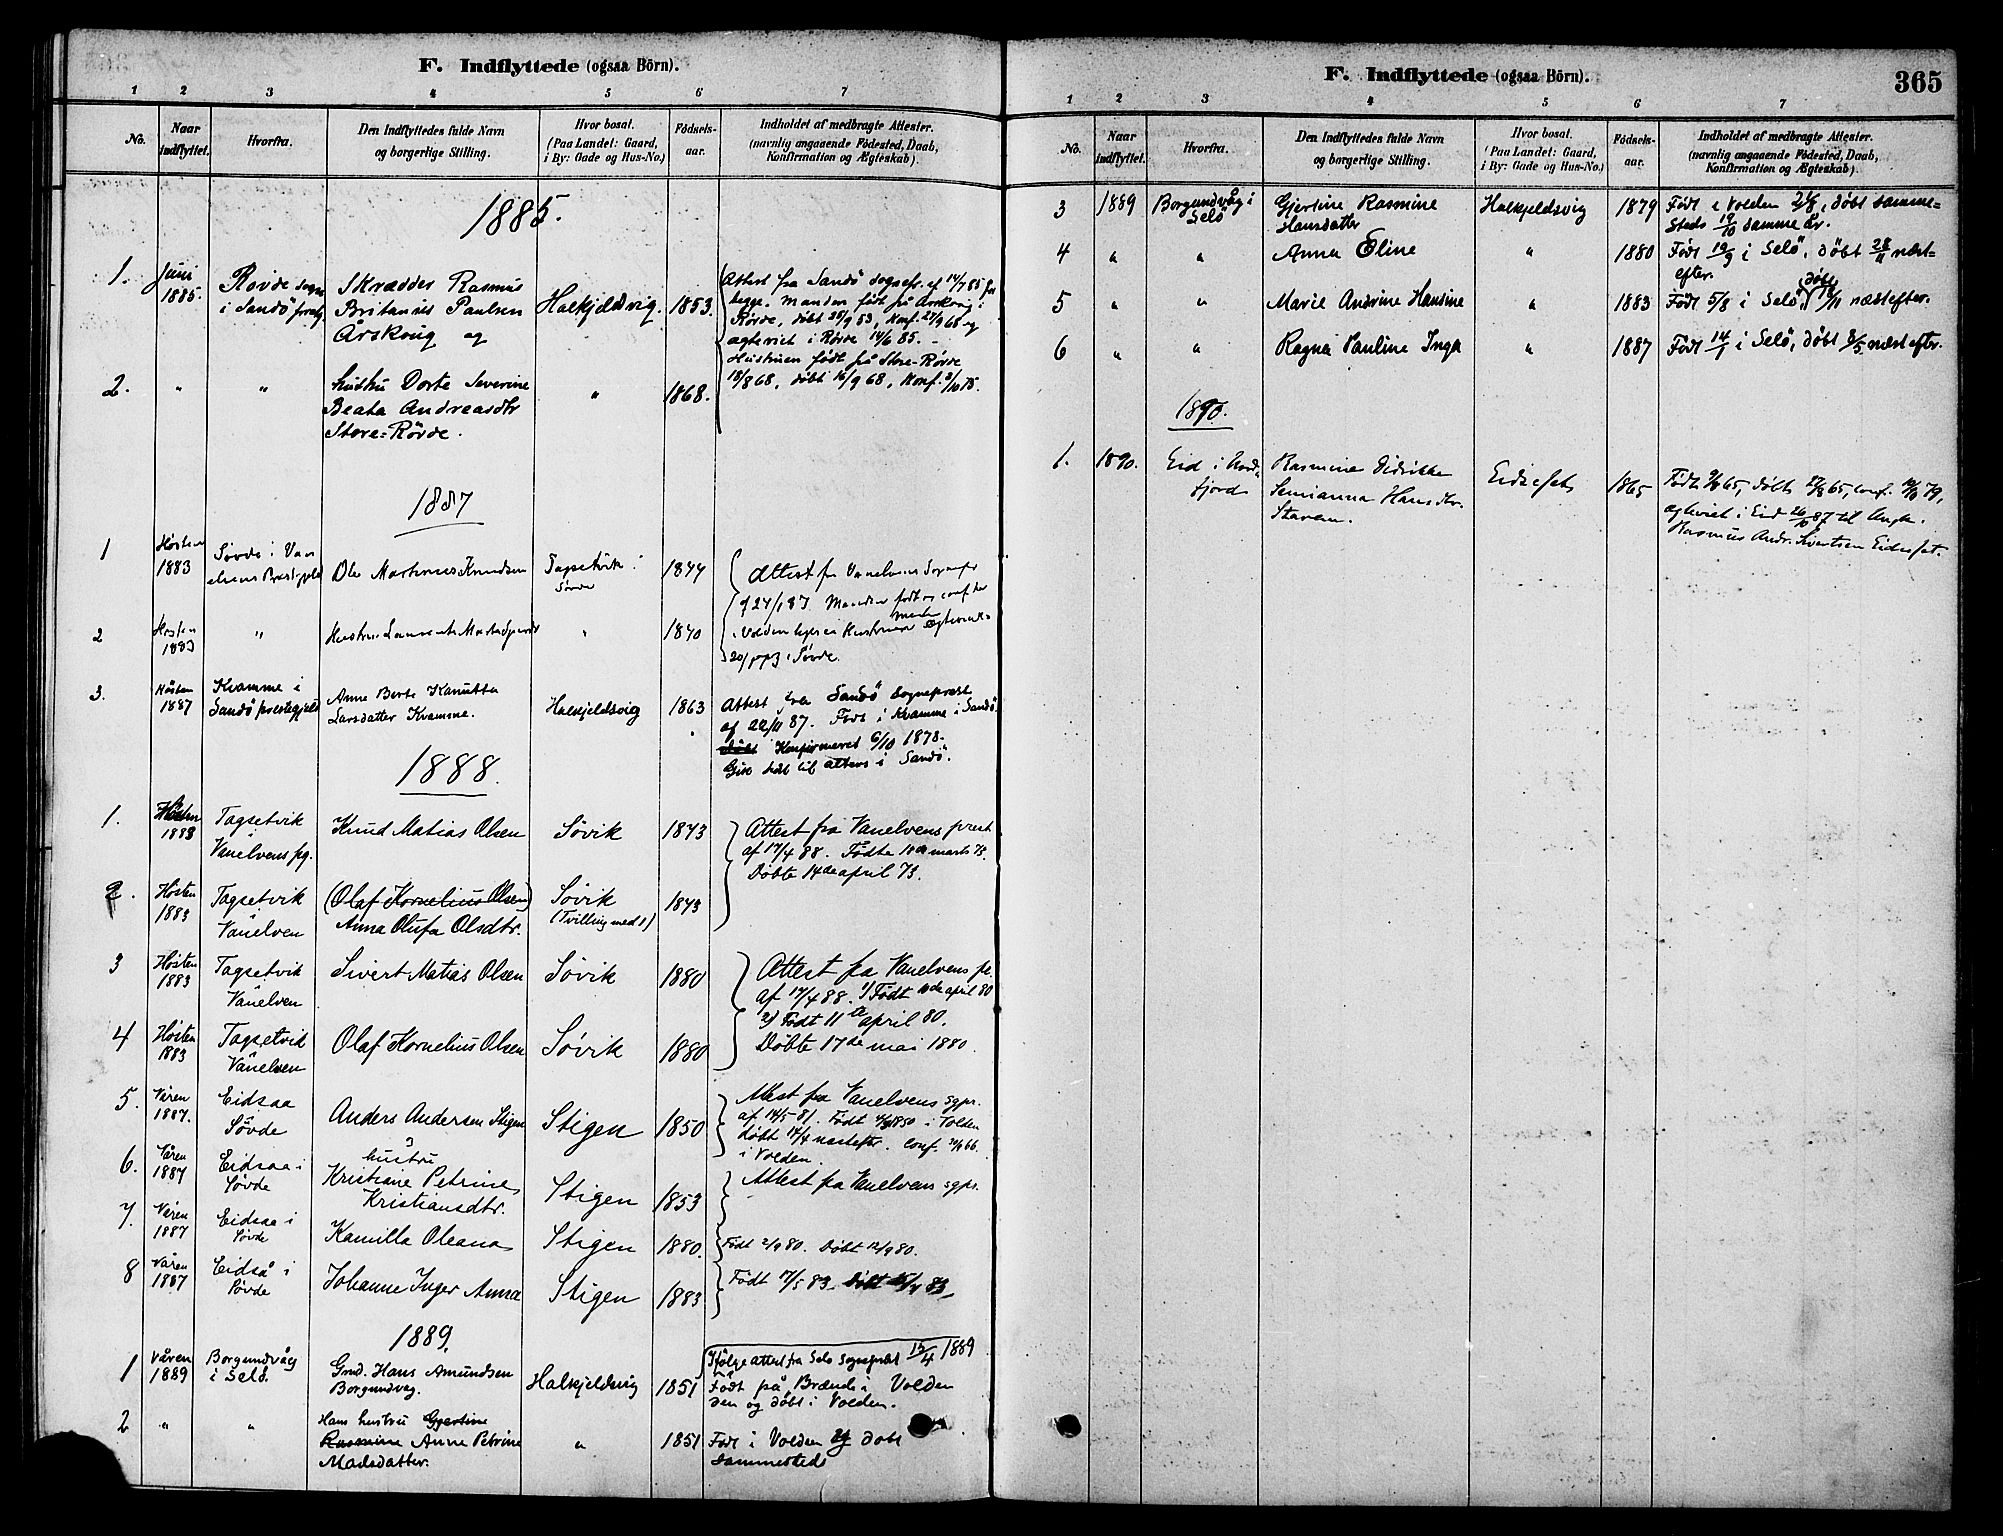 F. Indflyttede (ogsaa Börn).
1 2 3 4 5 6 7
No.
Naar indflyttet.
Hvorfra.
Den Indflyttedes fulde Navn
og borgerlige Stilling.
Hvor bosat.
(Paa Landet: Gaard,
i By: Gade og Hus-No.)
Fødsels-
aar.
Indholdet af medbragte Attester.
(navnlig angaaende Fødested, Daab,
Konfirmation og Ægteskab).
1885.
1. Juni 1885. Rovde sogn i Sandö
Skrædder Rasmus
Britanus Paulsen
Årskoug og
Halkjeldsvig. 1853.
Attest fra Sandö sognepr. af 14/7 85 for
begge. Manden født på Årskoug i
Røvde, døbt 25/9 53, Konf. 27/9 68 og
ægteviet i Røvde 14/6 85. –
Hustruen født på Store-Røvde
18/8 68, døbt 16/9 68, Konf.
2. " "
hustru Dorte Severine
Beata Andreasdtr
Store-Røvde.
" 1868.
1887
1 Høsten 1883 Søvde i Van
elvens Præstgjeld
Ole Martinus Knudsen
Sagsetvik i
Søvde
1844
Attest fra Vanelvens Sognepr
af 24/1 87. Manden født og conf her
i Volden Hustruen ægteviede
20/ Søvde.
2 Høsten 1883 " Hustru " 1840
3. Høsten 1887 Kvamme i
Sandö præstegjeld
Anne Berte Kanutta
Larsdatter Kvamme.
Halkjeldsvig 1863
Attest fra Sandö Sognepræst
af 22/11 87. Født i Kvamme i Sandö.
Døbt Konfirmeret 6/10 1878.
Gik sidst til alters i Sandö.
1888.
1. Høsten 1883 Tagsetvik
Vanelvens pg.
Knud Matias Olsen Søvik 1873
Attest fra Vanelvens prest
af 17/4 88. Födte 10de marts 73.
Döbte 14de april 73.
2. Høsten 1883 Tagsetvik
i Vanelven
(Olaf Kornelius Olsen)
Anna Olufa Olsdtr.
Søvik
(Tvilling med 1)
1873
3 Høsten 1883 Tagsetvik
Vanelven
Sivert Matias Olsen Søvik 1880
Attest fra Vanelvens pr.
af 17/4 88. 1) Født 10de april 80
2) Født 11te april 80.
Døbte 17de mai 1880.
4 Høsten 1883 Tagsetvik
Vanelven
Olaf Kornelius Olsen Søvik 1880
5. Våren 1887. Eidsaa
Søvde
Anders Andersen Stigen Stigen 1850
Attest fra Vanelvens sgpr.
af 14/5 - 81. Født 1850 i Volden
døbt 14/4 næstefter. Conf.
i Volden.
6. Våren 1887 Eidsaa i
Søvde
hustru
Kristiane Petrine
Kristiansdtr.
Stigen 1853
Attest fra Vanelvens sgpr.
7. Våren 1887 Eidsaa i
Søvde
Kamilla Oleana Stigen 1880.
Født 2/9 80. Døbt 12/9 80.
8 Våren 1887 Eidså i
Søvde
Johanne Inger Anna Stigen 1883
Født 17/5 83. Döbt 83.
1889.
1 Våren 1889 Borgundvåg
i Selö.
Grmd. Hans Amundsen
Borgundvåg.
Halkjeldsvig 1851
Ifølge attest fra Selö Sognepræst 15/4 1889
Født på Brænde i Volden
den og døbt i Volden.
2 " "
Hans hustru Gjertine
Rasmine Anne Petrine
Madsdatter.
" 1851
Født i Volden døbt
sammesteds
F. Indflyttede (ogsaa Börn).
365
1 2 3 4 5 6 7
No.
Naar indflyttet.
Hvorfra.
Den Indflyttedes fulde Navn
og borgerlige Stilling.
Hvor bosat.
(Paa Landet: Gaard,
i By: Gade og Hus-No.)
Fødsels-
aar.
Indholdet af medbragte Attester.
(navnlig angaaende Fødested, Daab,
Konfirmation og Ægteskab).
3 1889 Borgundvåg i
Selö
Gjertine Rasmine
Hansdatter
Halkjeldsvig 1879
Født i Volden døbt samme-
steds 19/10 samme år.
4 " " Anna Eline " 1880
Født 19/9 i Selö, døbt 28/11 næst-
efter.
5 " " Marie Andrine Hansine " 1883
Født 5/8 i Selö, døbt /11 næstefter.
6 " " Ragna Pauline Inga " 1887
Født 14/1 i Selö, døbt 8/5 næstefter.
1890.
1. 1890. Eid i Nord-
fjord
Rasmine Didrikke
Semianna Hansdtr.
Staven.
Eidsetset 1865
Født 65, døbt 65, conf. 79,
ægteviet i Eid 26/10 87 til Ungk.
Rasmus Andr. Sivertsen Eidsetset.